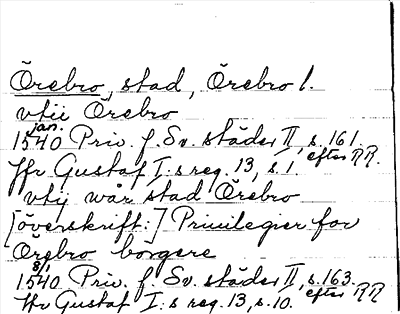 Örebro, stad, Örebro l.
vtii Örebro
jan.
1540 Priv. f. Sv. städer II, s. 161.
Jfr Gustaf I:s reg. 13, s. 1. efter RR.
vtij wår stad Örebro
[överskrift:] Priuilegier for
Örebro borgere
8/1
1540 Priv. f. Sv. städer II, s. 163.
Jfr Gustaf I:s reg. 13, s. 10. efter RR